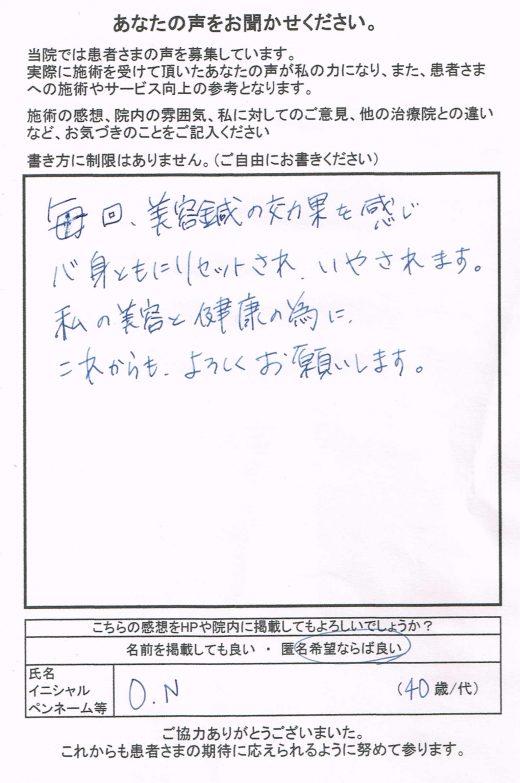 あなたの声をお聞かせください。
当院では患者さまの声を募集しています。
実際に施術を受けて頂いたあなたの声が私の力になり、また、患者さま
への施術やサービス向上の参考となります。
施術の感想、院内の雰囲気、私に対してのご意見、他の治療院との違い
など、お気づきのことをご記入ください
書き方に制限はありません。(ご自由にお書きください)
毎回、美容鍼の効果を感じ
心身ともにリセットされ、いやされます。
私の美容と健康の為に、
これからも、よろしくお願いします。
こちらの感想をHPや院内に掲載してもよろしいでしょうか?
名前を掲載しても良い ・ 匿名希望ならば良い
氏名
イニシャル
ペンネーム等
O.N
(40歳/代)
ご協力ありがとうございまいた。
これからも患者さまの期待に応えられるように努めて参ります。